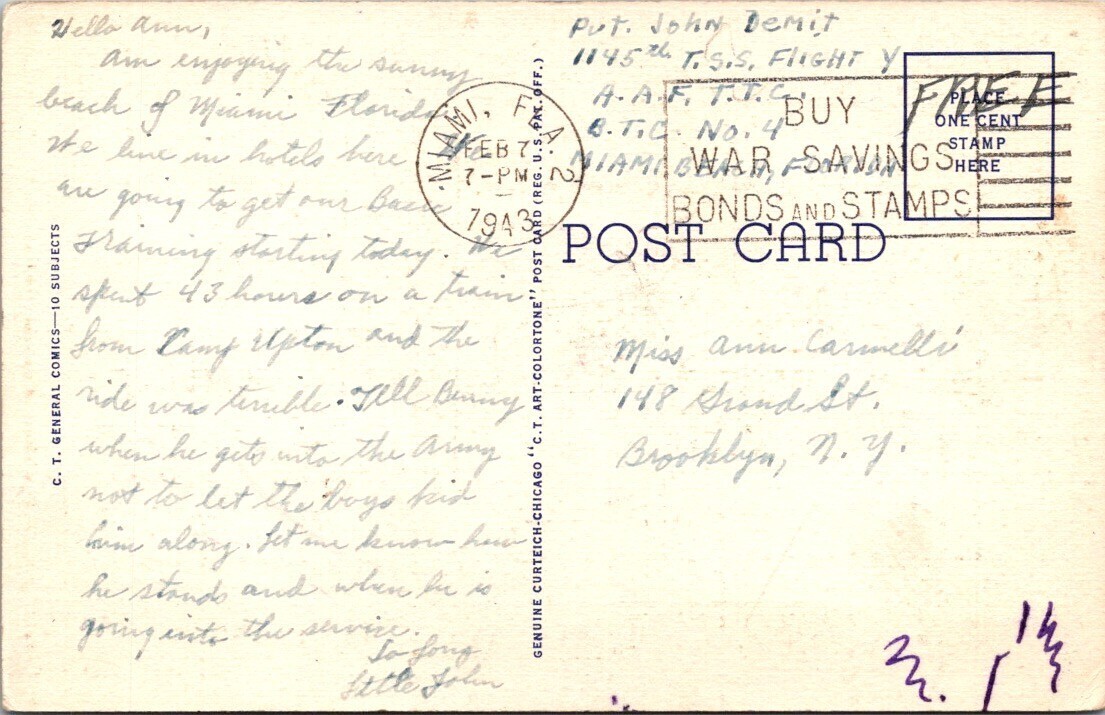 Hello Ann,
Am enjoying the sunny
beach of Miami Florida
We live in hotels here We
are going to get our Basic
Training starting today. We
spent 43 hours on a train
from Camp Upton and the
ride was terrible. Tell Benny
when he gets into the Army
not to let the boys kid
him along. Let me know how
he stands and when he is
going into the service.
So Long
Little John
C. T. GENERAL COMICS—10 SUBJECTS
GENUINE CURTEICH-CHICAGO "C. T. ART-COLORTONE" POST CARD (REG. U. S. PAT. OFF.)
MIAMI, FLA. 2
FEB 7
7-PM
1943
Pvt. John Demit
1145th T.S.S. FLIGHT Y
A.A.F. T.T.C.
B.T.C. No. 4
MIAMI BEACH, FLORIDA
FREE
BUY
WAR SAVINGS
BONDS AND STAMPS
PLACE
ONE CENT
STAMP
HERE
POST CARD
Miss Ann Carinelli
148 Grand St.
Brooklyn, N. Y.